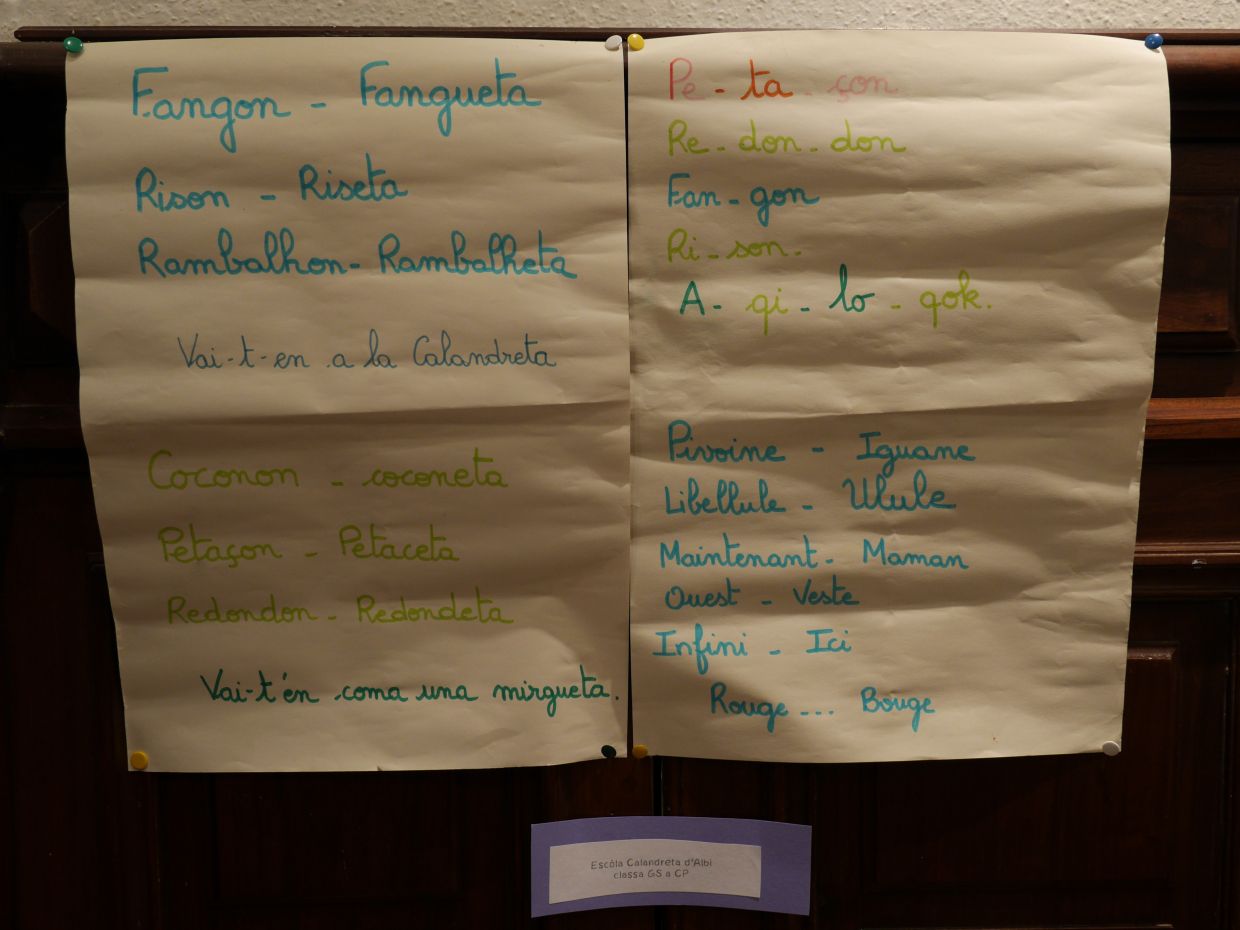 Fangon - Fangueta
Rison - Riseta
Rambalhon - Rambalheta
Vai-t-en a la Calandreta
Coconon - coconeta
Petaçon - Petaceta
Redondon - Redondeta
Vai-t'én coma una mirgueta.
Pe - ta - çon
Re - don - don
Fan - gon
Ri - son.
A - qi - lo - qok.
Pivoine - Iguane
Libellule - Ulule
Maintenant - Maman
Ouest - Veste
Infini - Ici
Rouge ... Bouge
Escòla Calandreta d'Albi
classa GS a CP